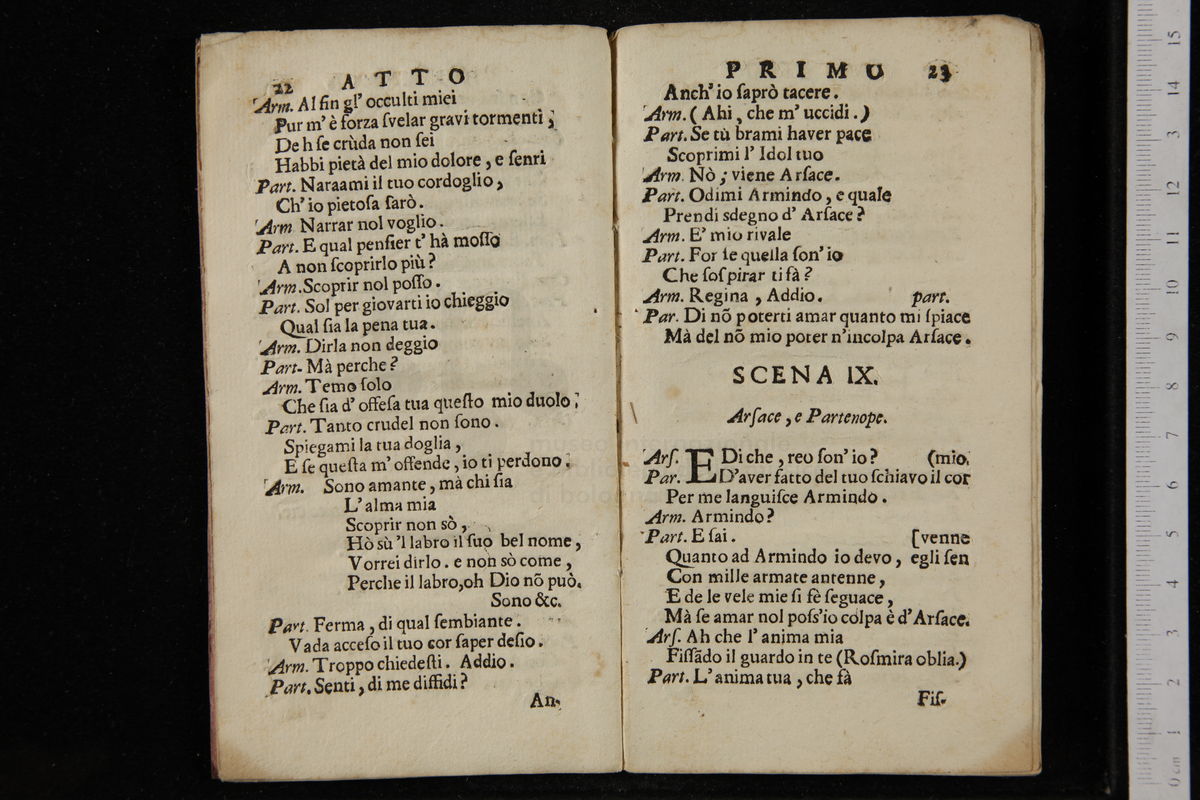 22 ATTO
Arm. Al fin gl' occulti miei
Pur m' è forza ſvelar gravi tormenti;
De h ſe crùda non ſei
Habbi pietà del mio dolore, e ſenri
Part. Naraami il tuo cordoglio,
Ch' io pietoſa ſarò.
Arm Narrar nol voglio.
Part. E qual penſier t' hà moſſo
A non ſcoprirlo più?
Arm. Scoprir nol poſſo.
Part. Sol per giovarti io chieggio
Qual ſia la pena tua.
Arm. Dirla non deggio
Part. Mà perche?
Arm. Temo ſolo
Che ſia d' offeſa tua queſto mio duolo;
Part. Tanto crudel non ſono.
Spiegami la tua doglia,
E ſe queſta m' offende, io ti perdono.
Arm. Sono amante, mà chi ſia
L' alma mia
Scoprir non sò,
Hò sù 'l labro il ſuo bel nome,
Vorrei dirlo. e non sò come,
Perche il labro, oh Dio nõ può.
Sono &c.
Part. Ferma, di qual ſembiante.
Vada acceſo il tuo cor ſaper deſio.
Arm. Troppo chiedeſti. Addio.
Part. Senti, di me diffidi?
An-
PRIMO 23
Anch' io ſaprò tacere.
Arm. (Ahi, che m' uccidi.)
Part. Se tù brami haver pace
Scoprimi l' Idol tuo
Arm. Nò; viene Arſace.
Part. Odimi Armindo, e quale
Prendi sdegno d' Arſace?
Arm. E' mio rivale
Part. For ſe quella ſon' io
Che ſoſpirar ti fà?
Arm. Regina, Addio. part.
Par. Di nõ poterti amar quanto mi ſpiace
Mà del nõ mio poter n'incolpa Arſace.
SCENA IX.
Arſace, e Partenope.
Arſ. E Di che, reo ſon' io? (mio.
Par. D'aver fatto del tuo ſchiavo il cor
Per me languiſce Armindo.
Arm. Armindo?
Part. E ſai. [venne
Quanto ad Armindo io devo, egli ſen
Con mille armate antenne,
E de le vele mie ſi fè ſeguace,
Mà ſe amar nol poſs'io colpa è d' Arſace.
Arſ. Ah che l' anima mia
Fiſſãdo il guardo in te (Roſmira oblia.)
Part. L' anima tua, che fà
Fiſ-